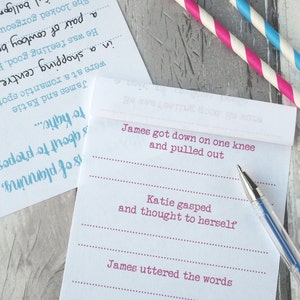 James got down on one knee
and pulled out
Katie gasped
and thought to herself
James uttered the words
She looked gorgeous
a pair of cowboy
He was feeling good
in a shopping centre
James and Katie
were at a romantic spot
of planning,
is about to propose
to Katie...